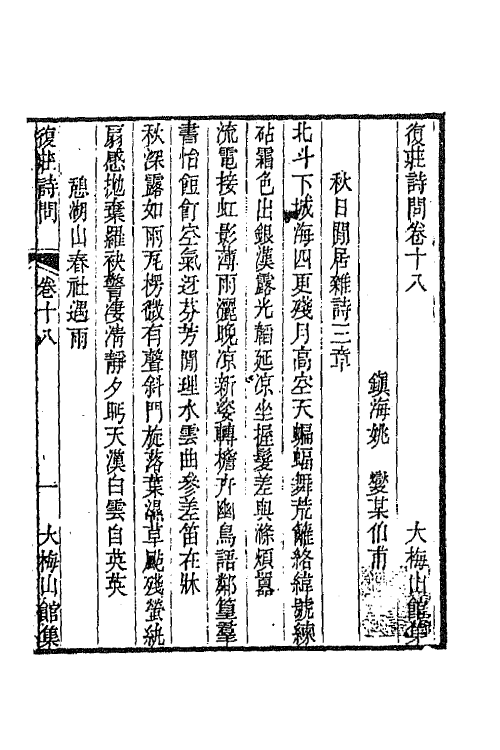 復莊詩問卷十八　大梅山館集
鎮海姚　燮某伯甫
秋日閒居雜詩三章
北斗下城海四更殘月高空天蝙蝠舞荒籬絡緯號練
砧霜色出銀漢露光韜延凉坐握髮差與滌煩囂
流電接虹影薄雨灑晚凉新姿轉檐卉幽鳥語鄰篁羣
書怡飣餖空氣迓芬芳閒理水雲曲參差笛在牀
秋深露如雨瓦楞微有聲斜門旋落葉濕草颭殘螢紈
扇感拋棄羅袂警淒凊靜夕眄天漢白雲自英英
憩湖山春社遇雨
復莊詩問　卷十八　一　大梅山館集